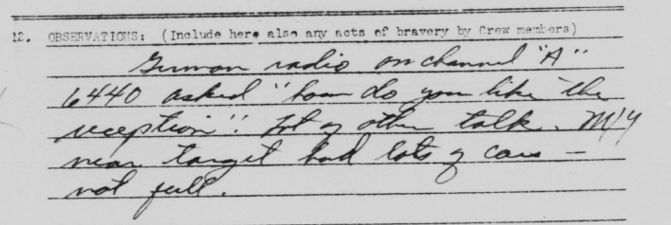 12. OBSERVATIONS: (Include here also any acts of bravery by Crew members)
German radio on channel "A"
6440 asked "how do you like the
reception". Lot of other talk. M/Y
near target had lots of cars —
not full.